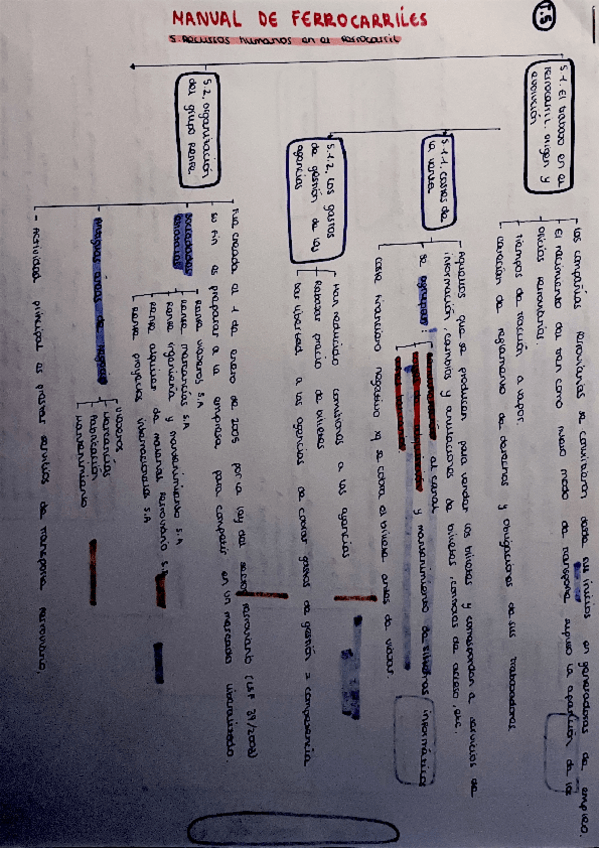 MANUAL DE FERROCARRILES
T.5
5. Recursos humanos en el ferrocarril
5.1. El trabajo en el
ferrocarril: origen y
evolución
Las compañías ferroviarias se convirtieron desde sus inicios en generadoras de empleo.
El nacimiento del tren como nuevo modo de transporte supuso la aparición de los
oficios ferroviarios.
Tiempos de tracción a vapor.
Creación de reglamento de derechos y obligaciones de sus trabajadores
5.1.1. Costes de
la venta
Aquellos que se producen para vender los billetes y corresponden a servicios de
información, cambios y anulaciones de billetes, controles de acceso, etc.
Se agrupan:
al canal
y mantenimiento de sistemas informáticos
Coste financiero negativo xq se cobra el billete antes de viajar.
5.1.2. Los gastos
de gestión de las
agencias
Han reducido comisiones a las agencias
Rebajar precio de billetes
Dar libertad a las agencias de cobrar gastos de gestión = competencia
5.2. Organización
del grupo Renfe
Fue creada el 1 de enero de 2005 por la ley del sector ferroviario (LSF 39/2003)
Su fin es preparar a la empresa para competir en un mercado liberalizado.
Sociedades
Renfe viajeros S.A
Renfe mercancías S.A
Renfe ingeniería y mantenimiento S.A
Renfe alquiler de material ferroviario S.A
Renfe proyectos internacionales S.A
áreas de negocio
Viajeros
Mercancías
Fabricación
Mantenimiento
- Actividad principal es prestar servicios de transporte ferroviario,